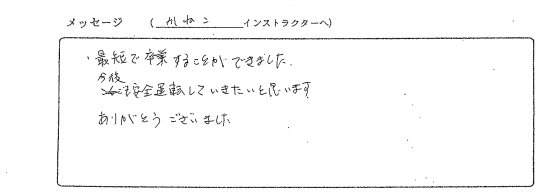 メッセージ (かねこインストラクターへ)
・最短で卒業することができました.
今後
も安全運転していきたいと思います
ありがとうございました